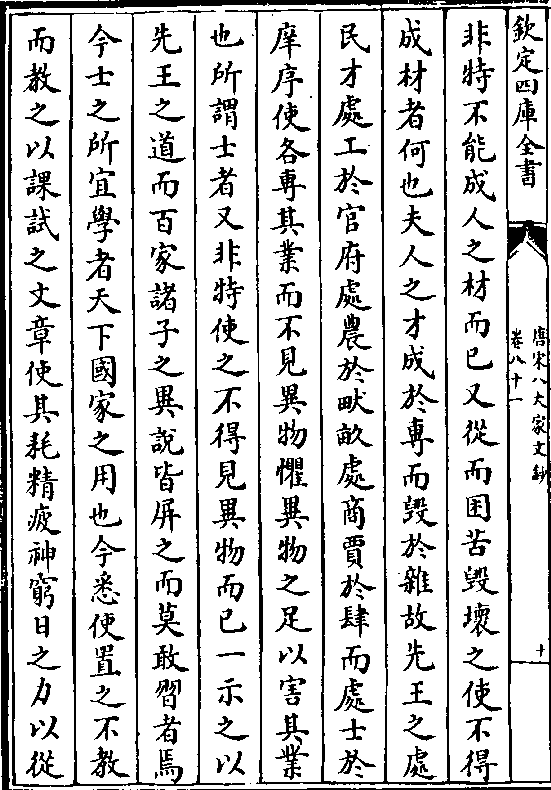 欽定四庫全書
唐宋八大家文鈔
卷八十一
十
非特不能成人之材而已又從而困苦毀壞之使不得
成材者何也夫人之才成於專而毀於雜故先王之處
民才處工於官府處農於畎畝處商賈於肆而處士於
庠序使各專其業而不見異物懼異物之足以害其業
也所謂士者又非特使之不得見異物而已一示之以
先王之道而百家諸子之異說皆屏之而莫敢習者焉
今士之所宜學者天下國家之用也今悉使置之不教
而教之以課試之文章使其耗精疲神窮日之力以從